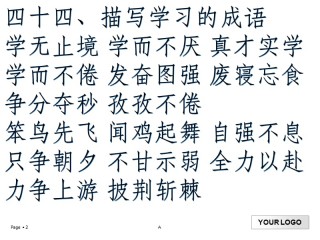 四十四、描写学习的成语
学无止境 学而不厌 真才实学
学而不倦 发奋图强 废寝忘食
争分夺秒 孜孜不倦
笨鸟先飞 闻鸡起舞 自强不息
只争朝夕 不甘示弱 全力以赴
力争上游 披荆斩棘
YOUR LOGO
Page ▪ 2
A